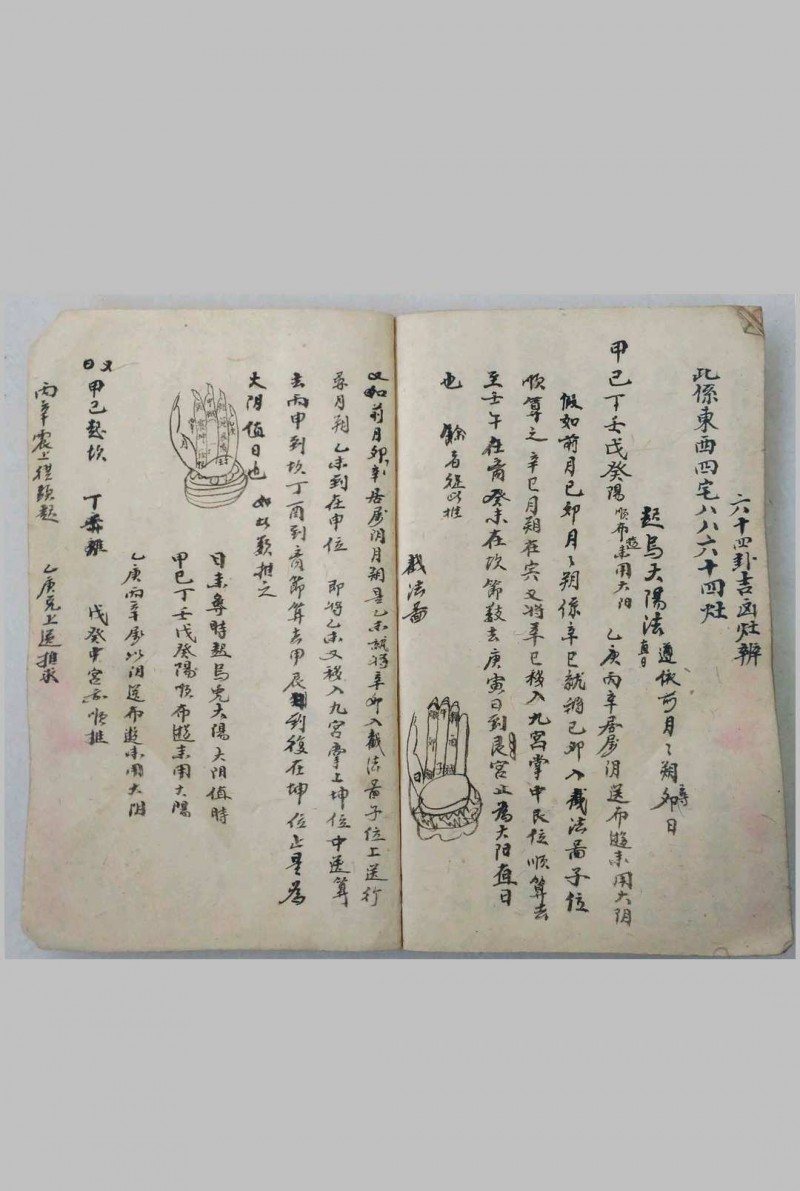 六十四卦吉凶灶辨
此係東西四宅八八六十四灶
起烏天陽法 直日 遵依前月月朔卯日
甲己丁壬戊癸陽順布遊未用大阳 乙庚丙辛居屬阴逆布遊未用大阴
假如前月己卯月月朔係辛巳就将己卯入截法啚子位
順算之辛巳月朔在宾又将辛巳移入九宮掌中艮位順算去
至壬午在离癸未在坎節数去庚寅日到艮宮止為大阳直日
也 餘者従此推
截法啚
又如前月卯辛居屬阴月朔是乙未就将辛卯入截法啚子位上逆行
尋月朔乙未到在申位 即将乙未又移入九宮掌上坤位中逆算
去丙申到坎丁酉到离節算去甲辰到復在坤位止是為
大阴值日也 如此類推之
日未尋時起烏兎大陽大阴值時
甲己丁壬戊癸陽順布遊未用大陽
乙庚丙辛屬以阴逆布遊未用大阴
又曰 甲己起坎 丁壬離 戊癸中宮亦順推
丙辛震上從頭起 乙庚兑上逆推求